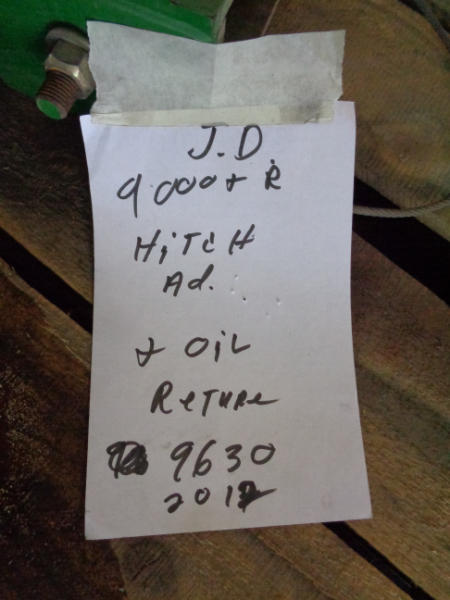 J.D.
9000 & R
HiTCH
Ad.
& OiL
ReTURN
9630
2012